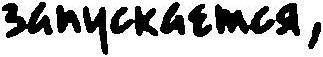 запускается,